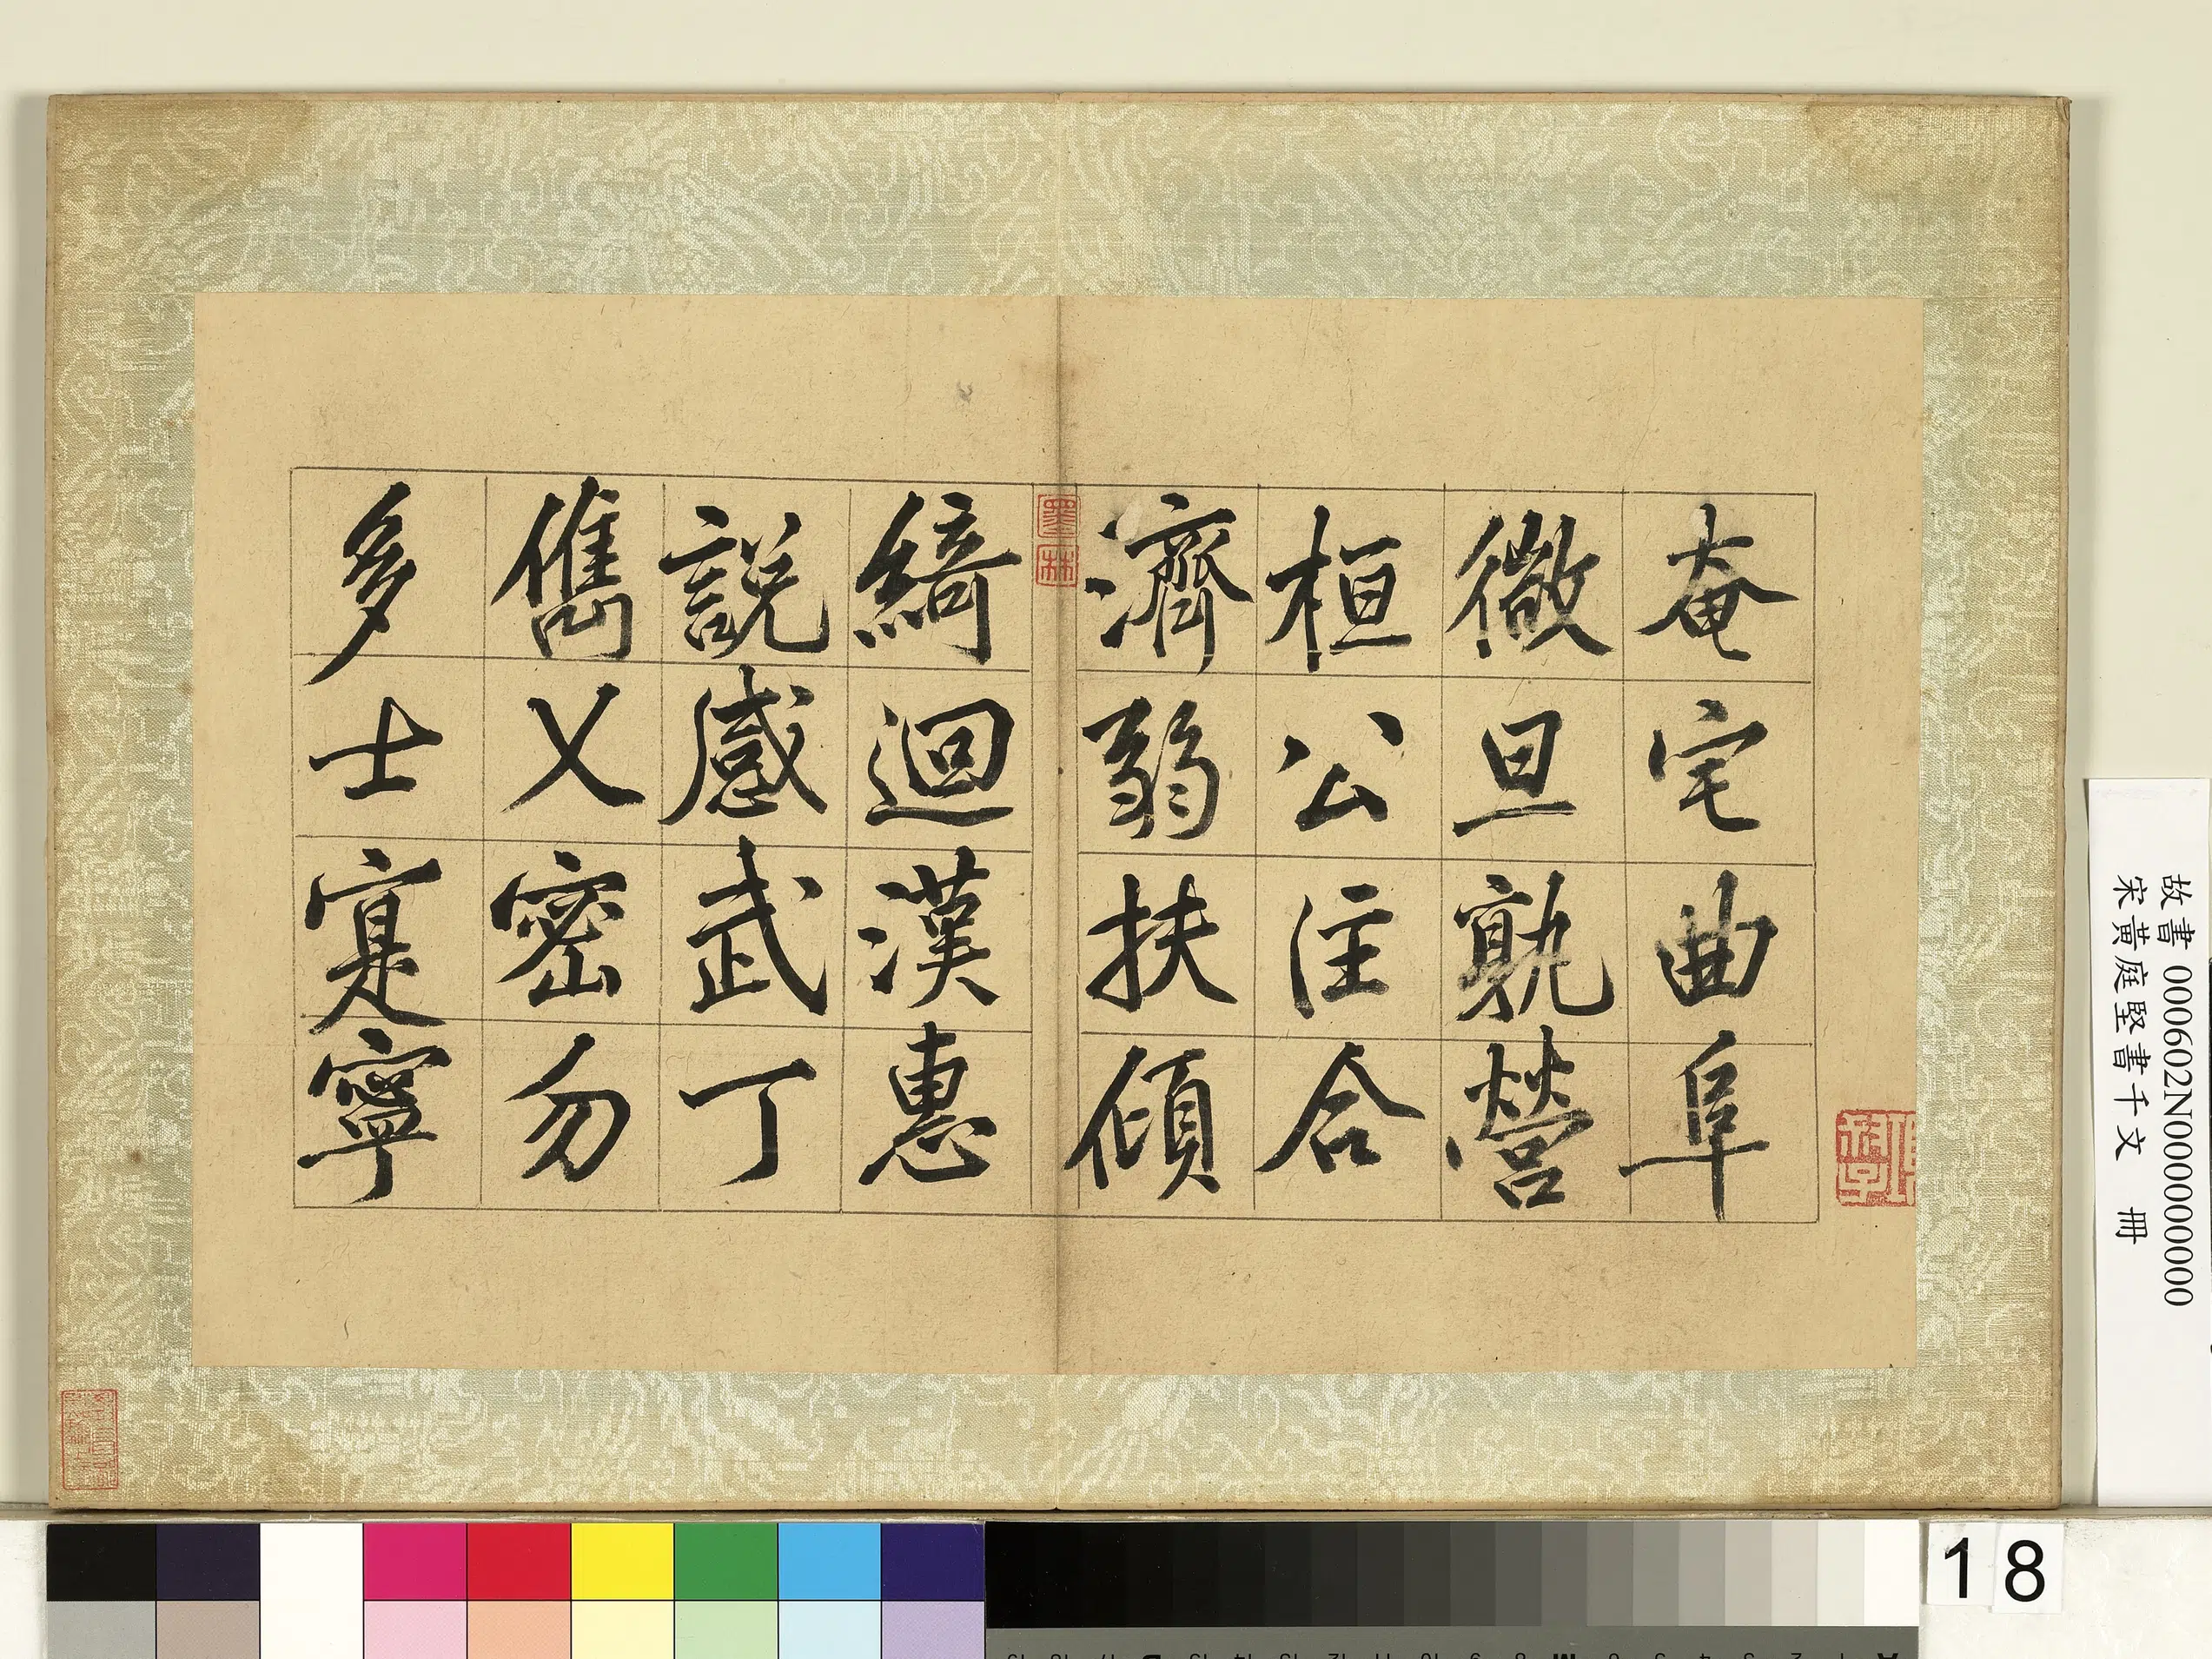 奄宅曲阜
微旦孰營
桓公注合
濟弱扶傾
綺迴漢惠
說感武丁
儁乂密勿
多士寔寧
墨林
故書 000602N000000000
宋黃庭堅書千文 冊
18